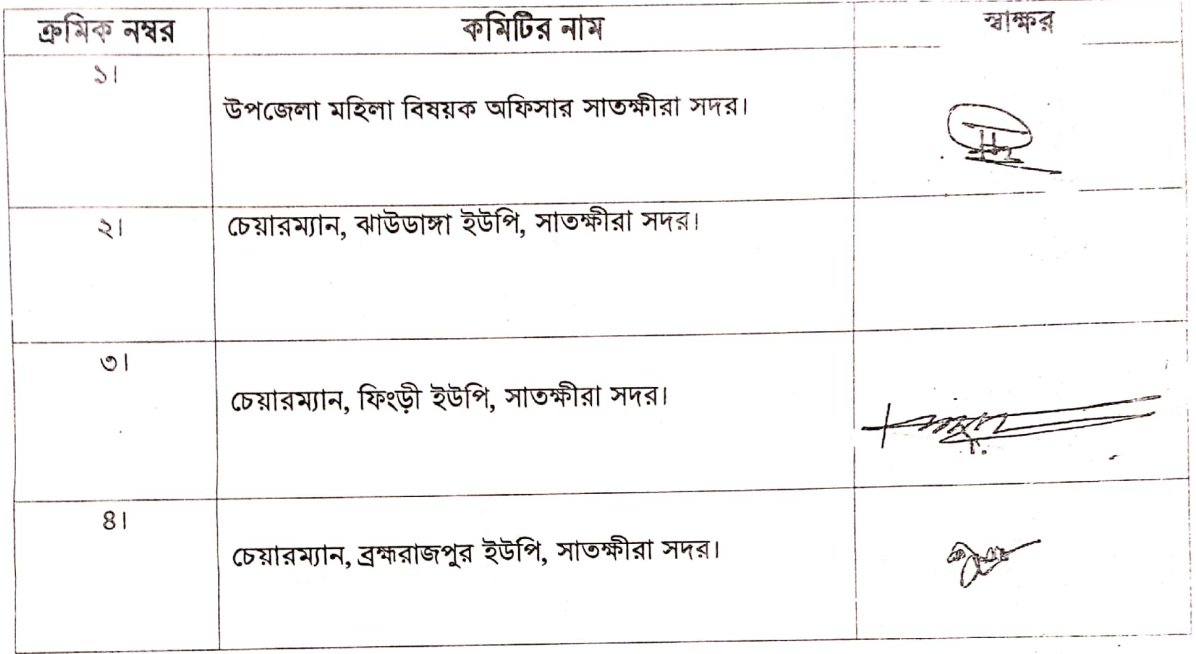 ক্রমিক নম্বর কমিটির নাম স্বাক্ষর
১।
উপজেলা মহিলা বিষয়ক অফিসার সাতক্ষীরা সদর।
২। চেয়ারম্যান, ঝাউডাঙ্গা ইউপি, সাতক্ষীরা সদর।
৩।
চেয়ারম্যান, ফিংড়ী ইউপি, সাতক্ষীরা সদর।
৪।
চেয়ারম্যান, ব্রহ্মরাজপুর ইউপি, সাতক্ষীরা সদর।